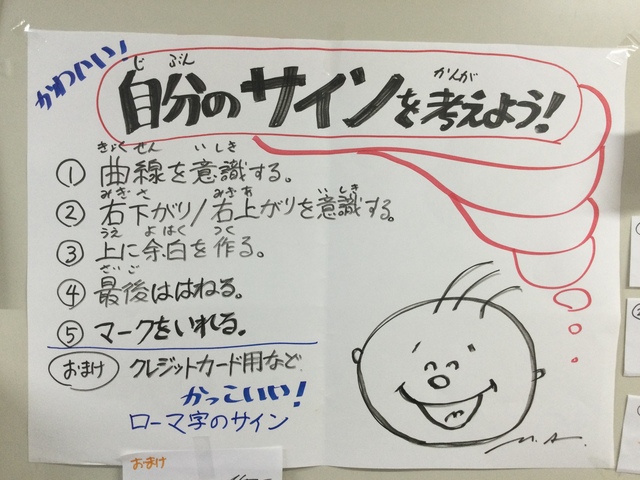 かわいい！
じ ぶん かんが
自分のサインを考えよう！
きょくせん いしき
① 曲線を意識する。
みぎさ みぎあ いしき
② 右下がり/右上がりを意識する。
うえ よはく つく
③ 上に余白を作る。
さいご
④ 最後ははねる。
⑤ マークをいれる。
おまけ クレジットカード用など
かっこいい！
ローマ字のサイン
M.A.
おまけ